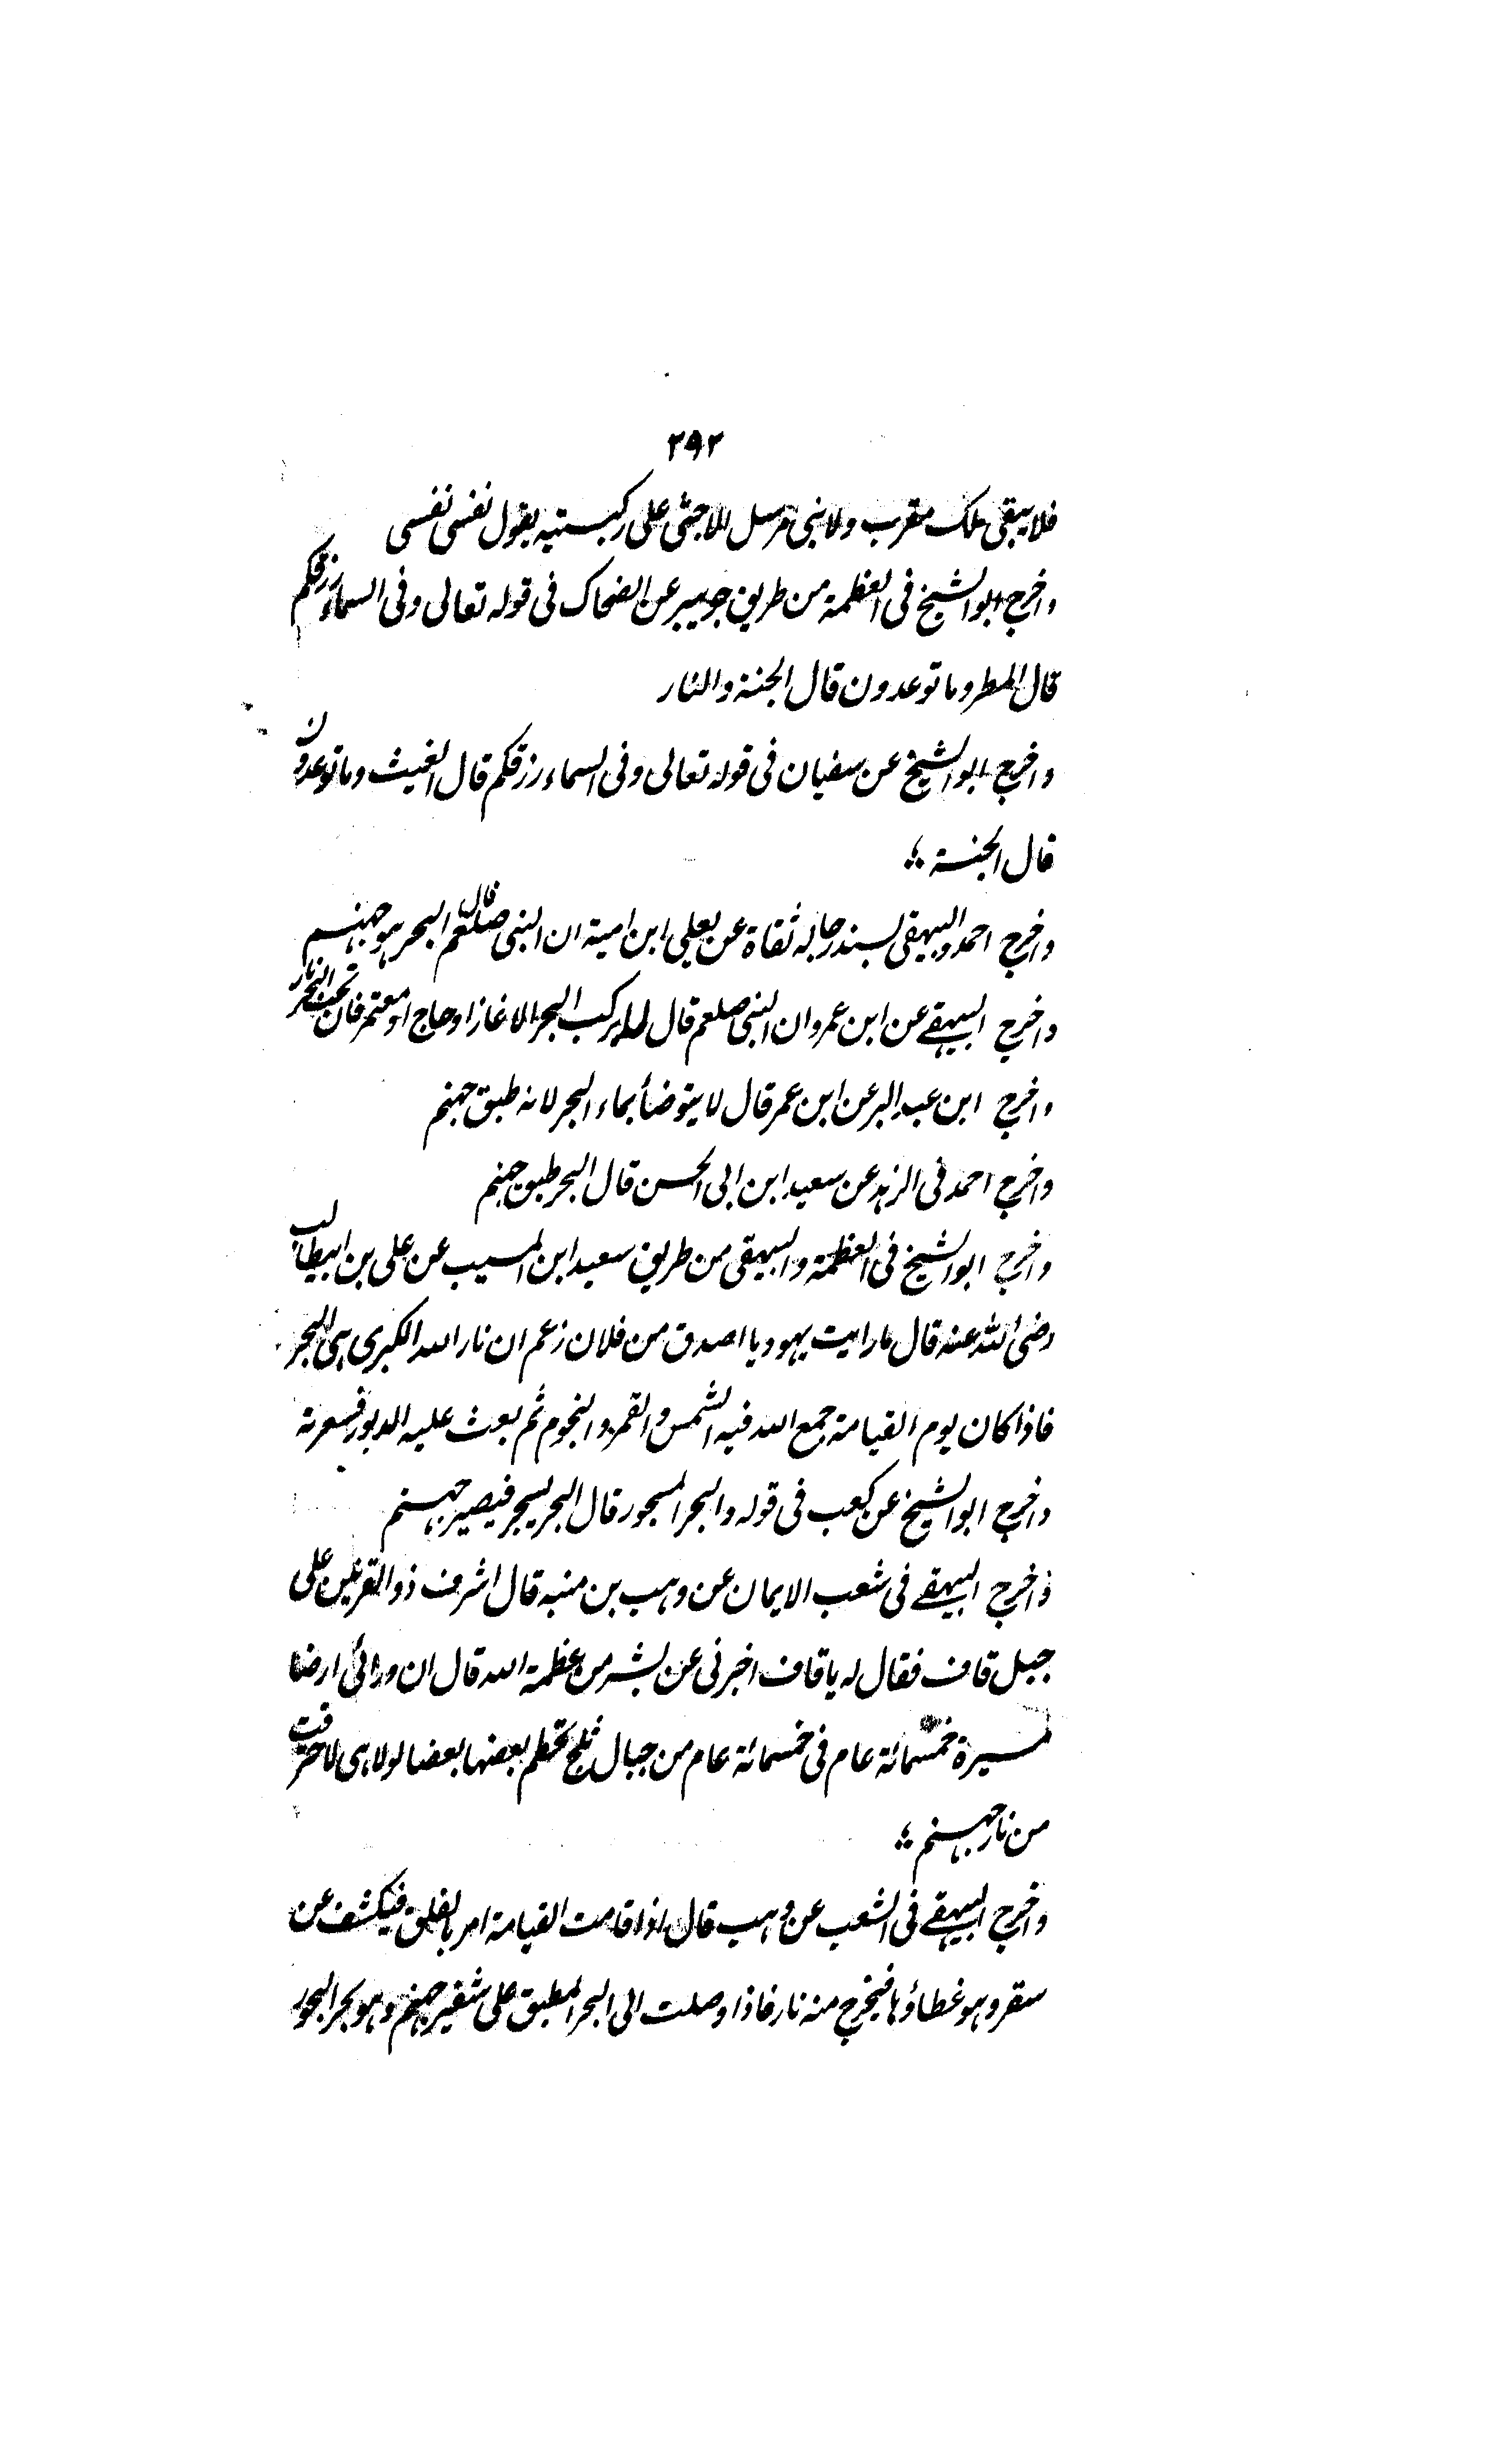 ٢٩٢
فلا يبقى ملك مقرب ولا نبى مرسل الا جثى على ركبتيه يقول نفسى نفسى
واخرج ابو الشيخ فى العظمة من طريق جويبر عن الضحاك فى قوله تعالى وفى السماء رزقكم
قال المطر وما توعدون قال الجنة والنار
واخرج ابو الشيخ عن سفيان فى قوله تعالى وفى السماء رزقكم قال الغيث وما توعدون
قال الجنة ؞
واخرج احمد والبيهقى بسند رجاله ثقاة عن يعلى ابن امية ان النبى صلعم قال البحر هو جهنم
واخرج البيهقے عن ابن عمرو ان النبى صلعم قال لا يركب البحر الا غاز او حاج او معتمر فان تحت البحر النار
واخرج ابن عبد البر عن ابن عمر قال لا يتوضأ بماء البحر لانه طبق جهنم
واخرج احمد فى الزهد عن سعيد ابن ابى الحسن قال البحر طبق جهنم
واخرج ابو الشيخ فى العظمة والبيهقى من طريق سعيد ابن المسيب عن على بن ابيطالب
رضى الله عنه قال ما رايت يهوديا اصدق من فلان زعم ان نار الله الكبرى هى البحر
فاذا كان يوم القيامة جمع الله فيه الشمس والقمر والنجوم ثم بعث عليه الدبور فسعرته
واخرج ابو الشيخ عن كعب فى قوله والبحر المسجور قال البحر يسجر فيصير جهنم
واخرج البيهقے فى شعب الايمان عن وهب بن منبه قال اشرف ذو القرنين على
جبل قاف فقال له يا قاف اخبرنى عن بشر من عظمة الله قال ان ورائى ارضا
مسيرة خمسمائة عام فى خمسمائة عام من جبال ثلج يحطم بعضها بعضا لولا هى لاحترقت
من نار جهنم ؞
واخرج البيهقے فى الشعب عن وهب قال اذا قامت القيامة امر بالفلق فيكشف عن
سقر وهو غطاؤها فيخرج منه نار فاذا وصلت الى البحر المطبق على شفير جهنم وهو بحر البحور